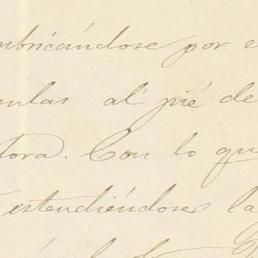 ubricándose por e
ulas al pié de
tora. Con lo qu
estendiéndose la